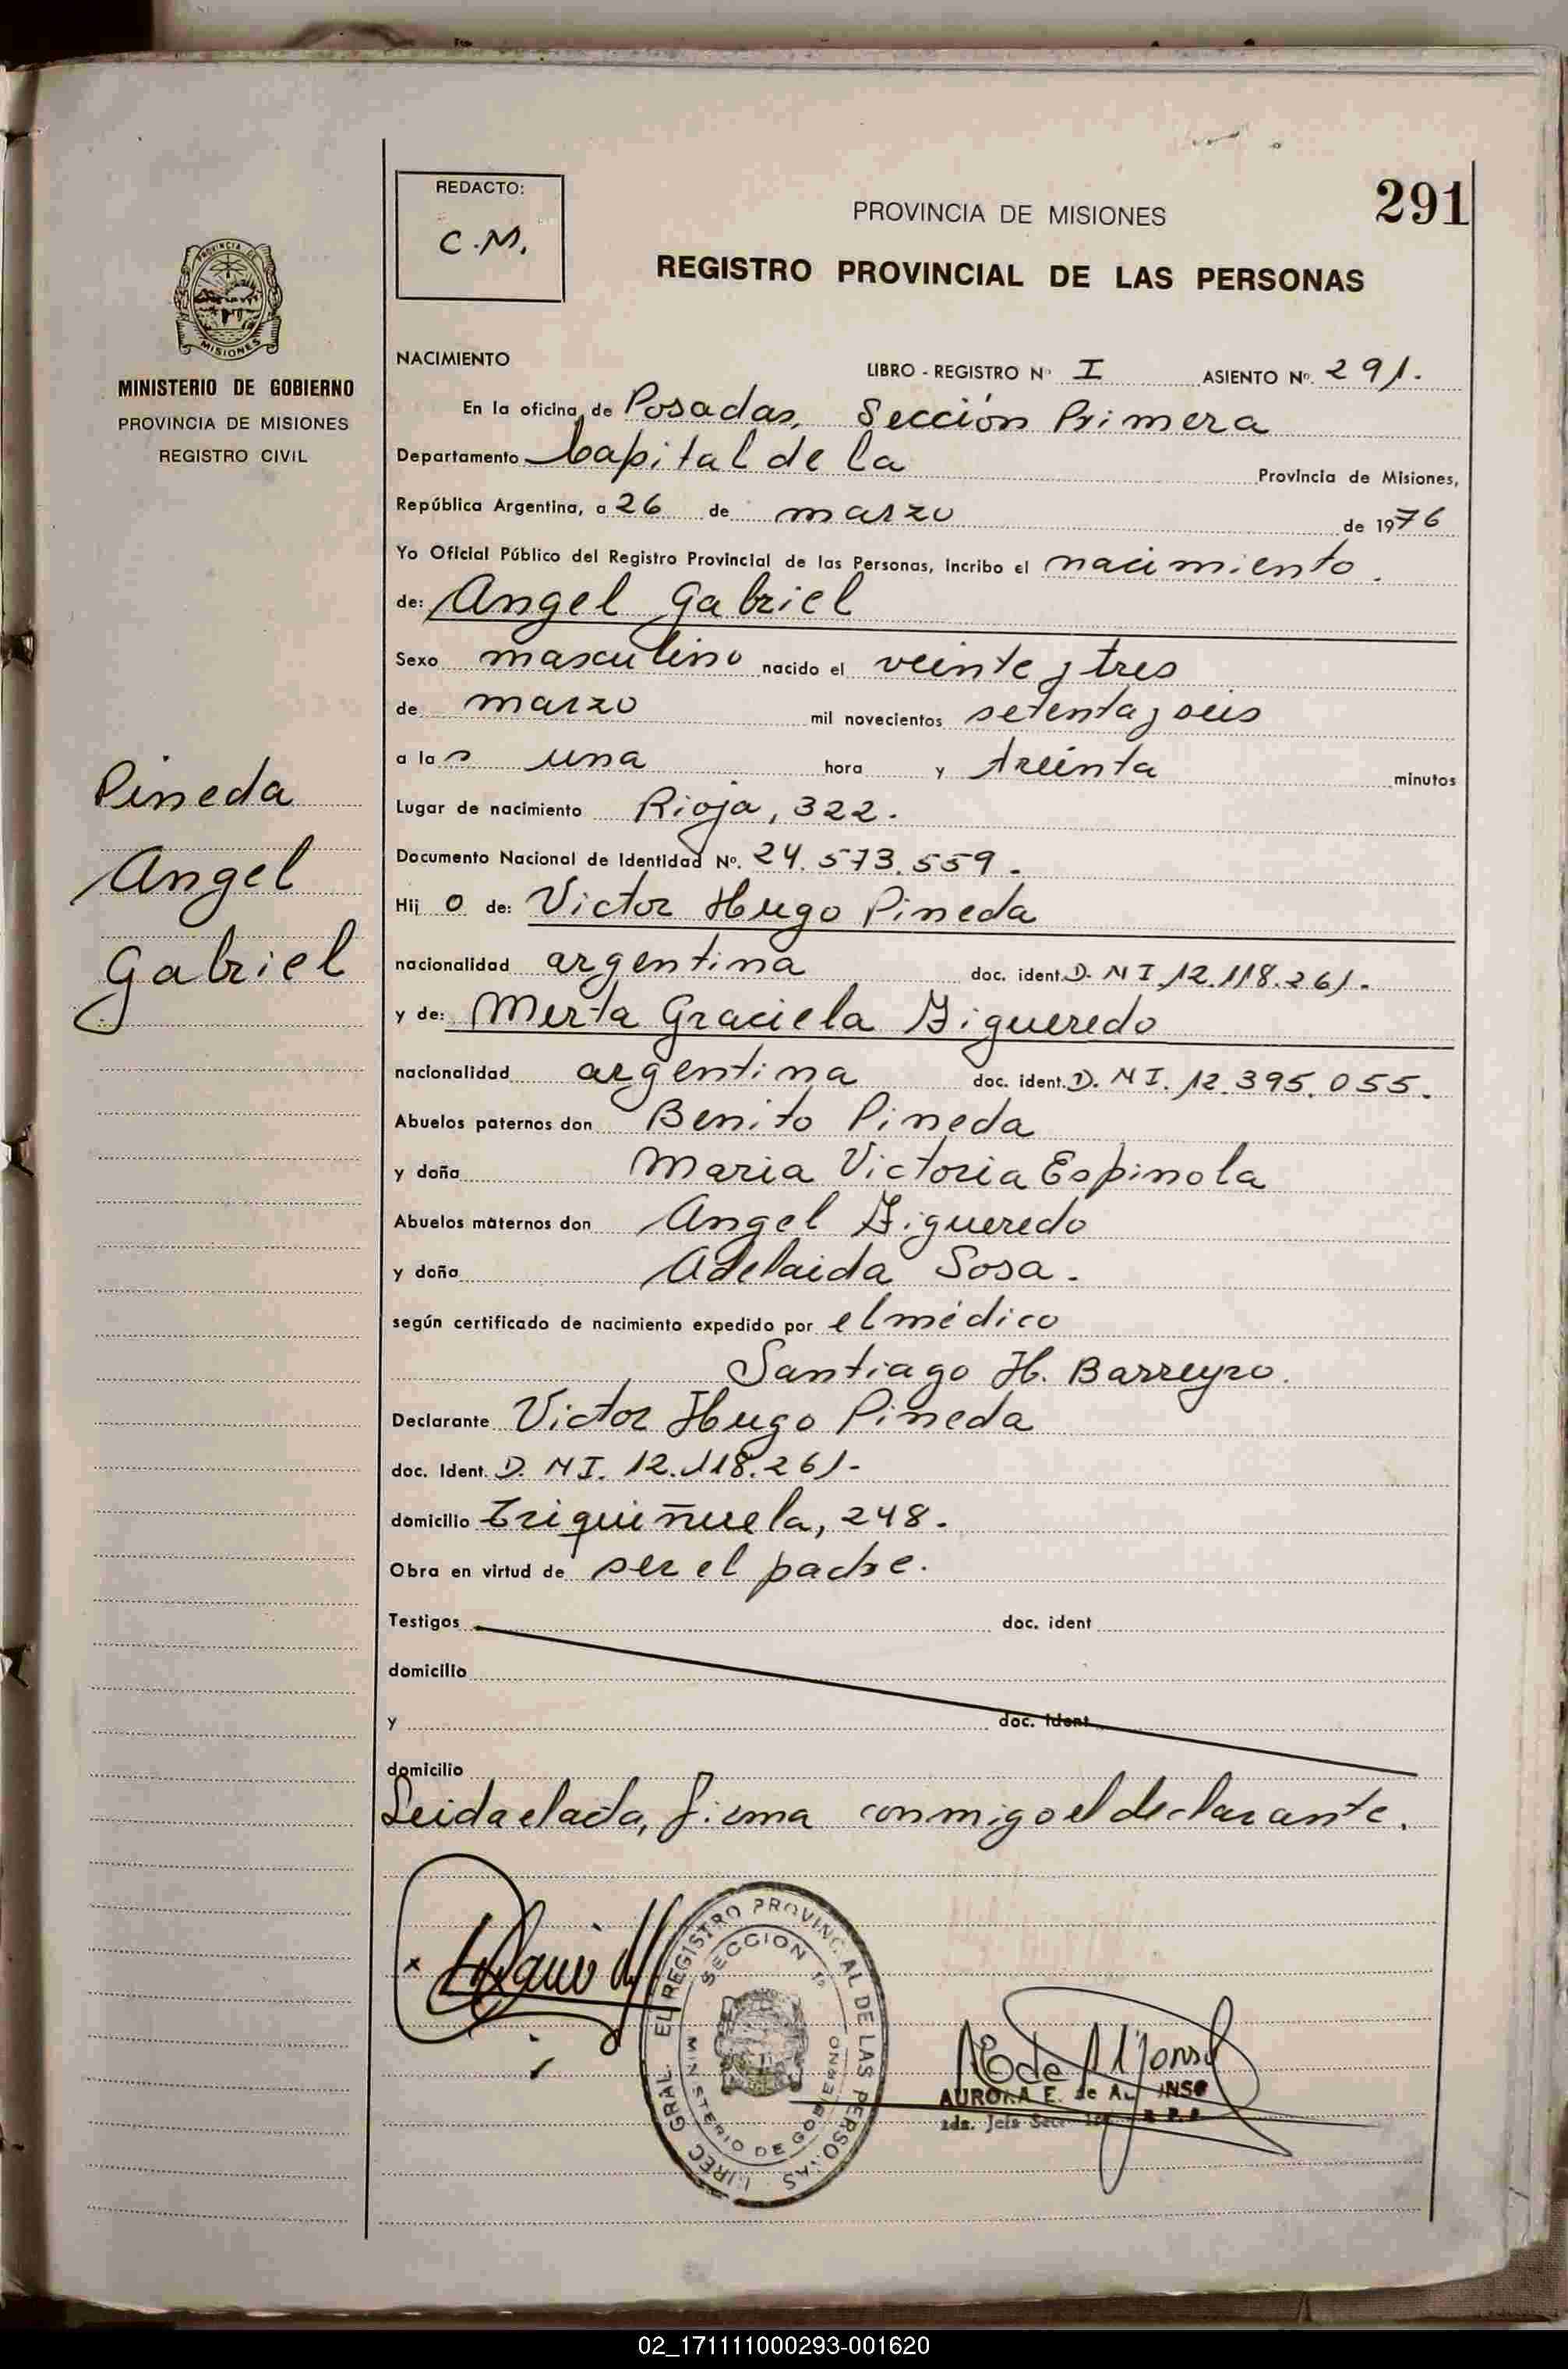 291
REDACTO:
C.M.
PROVINCIA DE MISIONES
REGISTRO PROVINCIAL DE LAS PERSONAS
PROVINCIA DE
MISIONES
MINISTERIO DE GOBIERNO
PROVINCIA DE MISIONES
REGISTRO CIVIL
Pineda
Angel
Gabriel
NACIMIENTO
LIBRO - REGISTRO Nº I ASIENTO Nº. 291.
En la oficina de Posadas, Sección Primera
Departamento Capital de la Provincia de Misiones,
República Argentina, a 26 de marzo de 1976
Yo Oficial Público del Registro Provincial de las Personas, incribo el nacimiento.
de: Angel Gabriel
Sexo masculino nacido el veinte y tres
de marzo mil novecientos setenta y seis
a las una hora y treinta minutos
Lugar de nacimiento Rioja, 322.
Documento Nacional de Identidad Nº. 24.573.559.
Hij o de: Victor Hugo Pineda
nacionalidad argentina doc. ident. D.N.I. 12.118.261.
y de: Mirta Graciela Figueredo
nacionalidad argentina doc. ident. D.N.I. 12.395.055.
Abuelos paternos don Benito Pineda
y doña Maria Victoria Espinola
Abuelos maternos don Angel Figueredo
y doña Adelaida Sosa.
según certificado de nacimiento expedido por el médico
Santiago H. Barreyro.
Declarante Victor Hugo Pineda
doc. Ident. D.N.I. 12.118.261.
domicilio Triquiñuela, 248.
Obra en virtud de ser el padre.
Testigos doc. ident
domicilio
y doc. ident
domicilio
Leida el acta, firma conmigo el declarante.
REGISTRO PROVINCIAL DE LAS PERSONAS
SECCION 1ª
MINISTERIO DE GOBIERNO
AURORA E. de ALFONSO
02_171111000293-001620